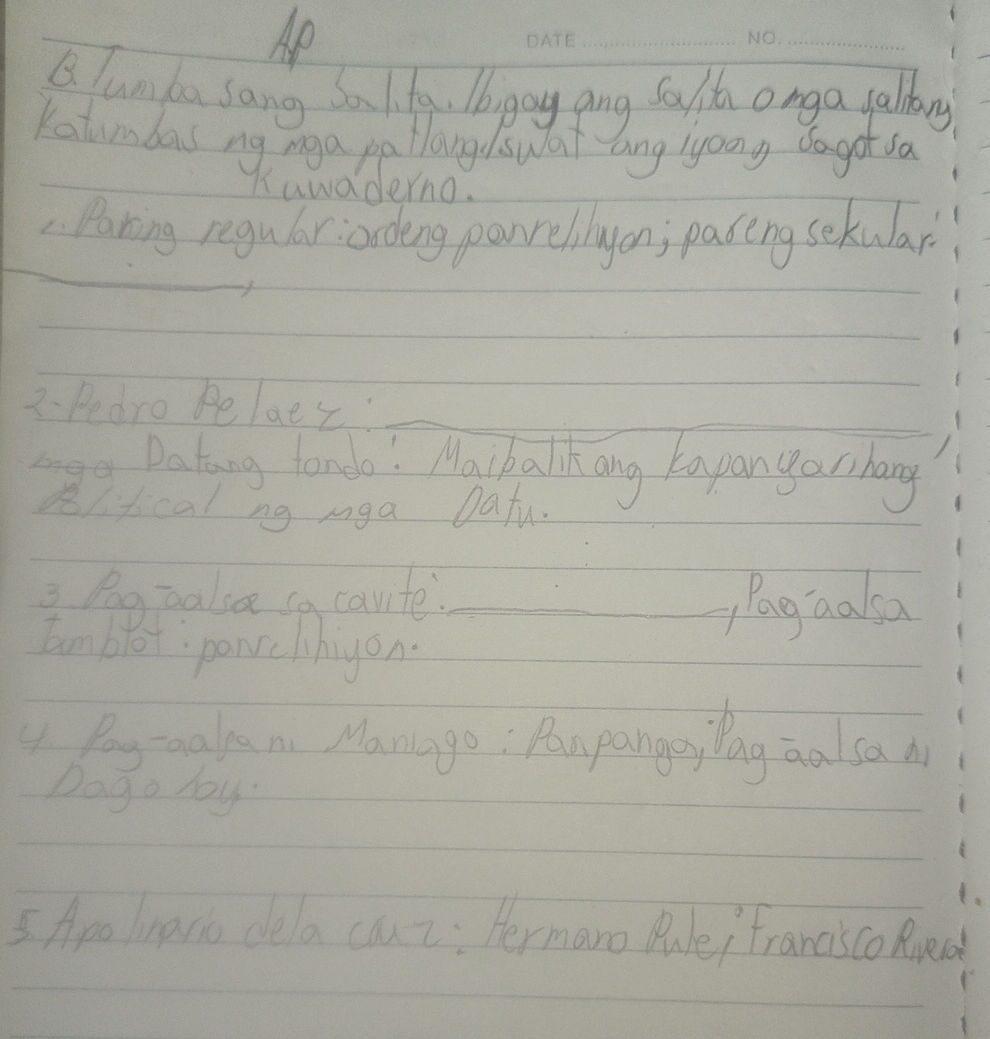 AP
DATE NO.
B. Tumba sang Salita. Ibigay ang salita o mga salitang
katumbas ng mga patlang Isulat ang iyong sagot sa
kuwaderno.
1. Paring regular: ordeng panrelihiyon; pareng sekular:
2. Pedro Pelaez:
mga Datang tondo: Maibalik ang kapangyarihang
Political ng mga Datu.
3 Pag-aalsa sa cavite: , Pag-aalsa
tamblot: panrelihiyon.
4. Pag-aalsa ni Maniago: Panpanga; Pag-aalsa ni
Dagohoy:
5. Apolinario dela cruz: Hermano Pule; Francisco Rivera: